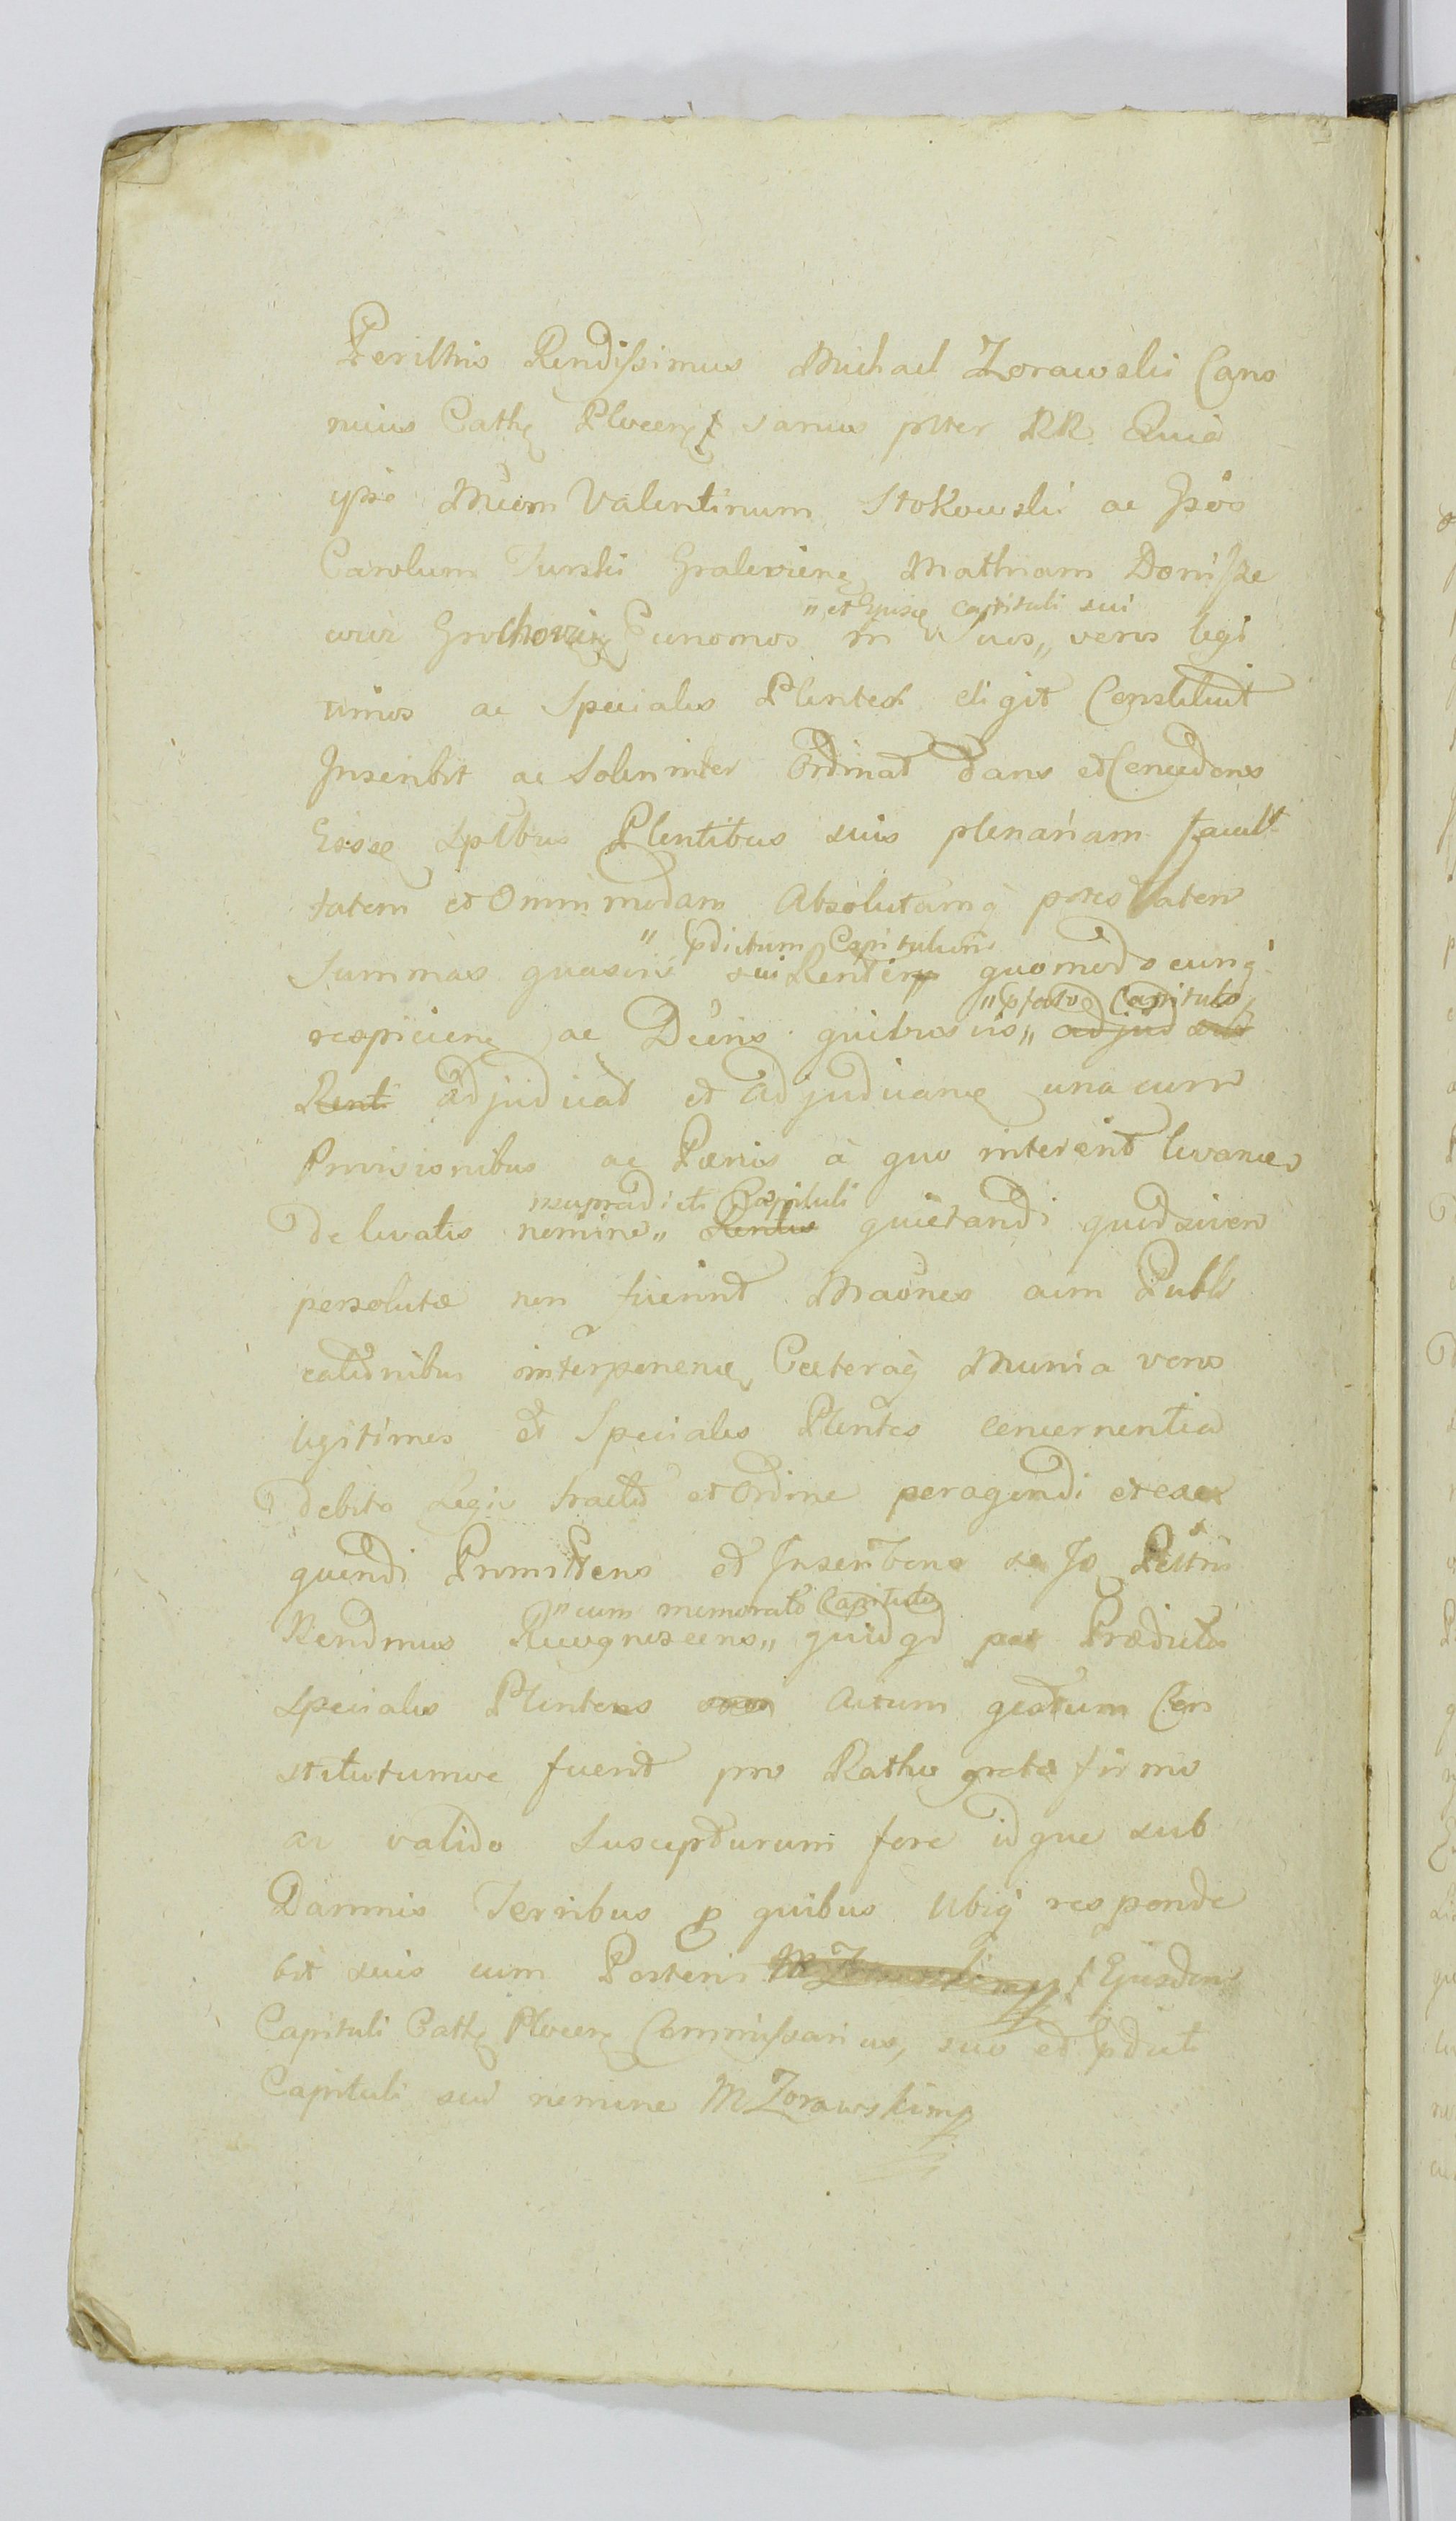 Perillris Rendissimus Michael Zorawski Cano
nicus Cathę Plocenę sanus plter RR. Quia
ipse Mcum Valentinum Stokowski ac Gsos
Carolum Turski Gralevienę Mathiam Donisze
wicz Grochovię Œunomos in
„ et Ejusę Capituli sui
Suos „ veros legi
timos ac Speciales Plentes eligit Constituit
Inscribit ac Solenniter Ordinat dans et Concedens
Eisdę Splbus Plentibus suis plenariam facul
tatem et Omnimodam Absolutamq̀ potestatem
„ pdictum Capitulum
Summas quasvis sui Rendemp quomodocunq̀
„ pfato Capitulo
respicienę ac Decris quibusvis „ adjud sibi
Renti adjudicat et Adjudicanę una cum
Provisionibus ac Pœnis à quo intererit levanes
nsupradicti Capituli
de levatis nomine „ Rentis quietandi quod siven
persolutæ non fuerint Maönes cum Publi
cationibus interponenę Cæteraq̀ Munia veros
legitimos et Speciales Plentes concernentia
debito Legis tractu et Ordine peragendi et exe
quendi Promittens et Inscribens se Is Pellris
„ cum memorato Capitulo
Rendmus Recognoscens „ quidqd per Prædictos
Speciales Plentens suos Actum gestum Con
stitutumve fuerit pro Ratho grato firmo
ac valido Suscepturum fore idque sub
Damnis Terribus p quibus Ubiq̀ responde
bit suis cum Posteris M Zorawski mp Ejusdem
Capituli Cathę Plocenę Commissarius, suo et pdicti
Capituli sui nomine M Zorawski mp